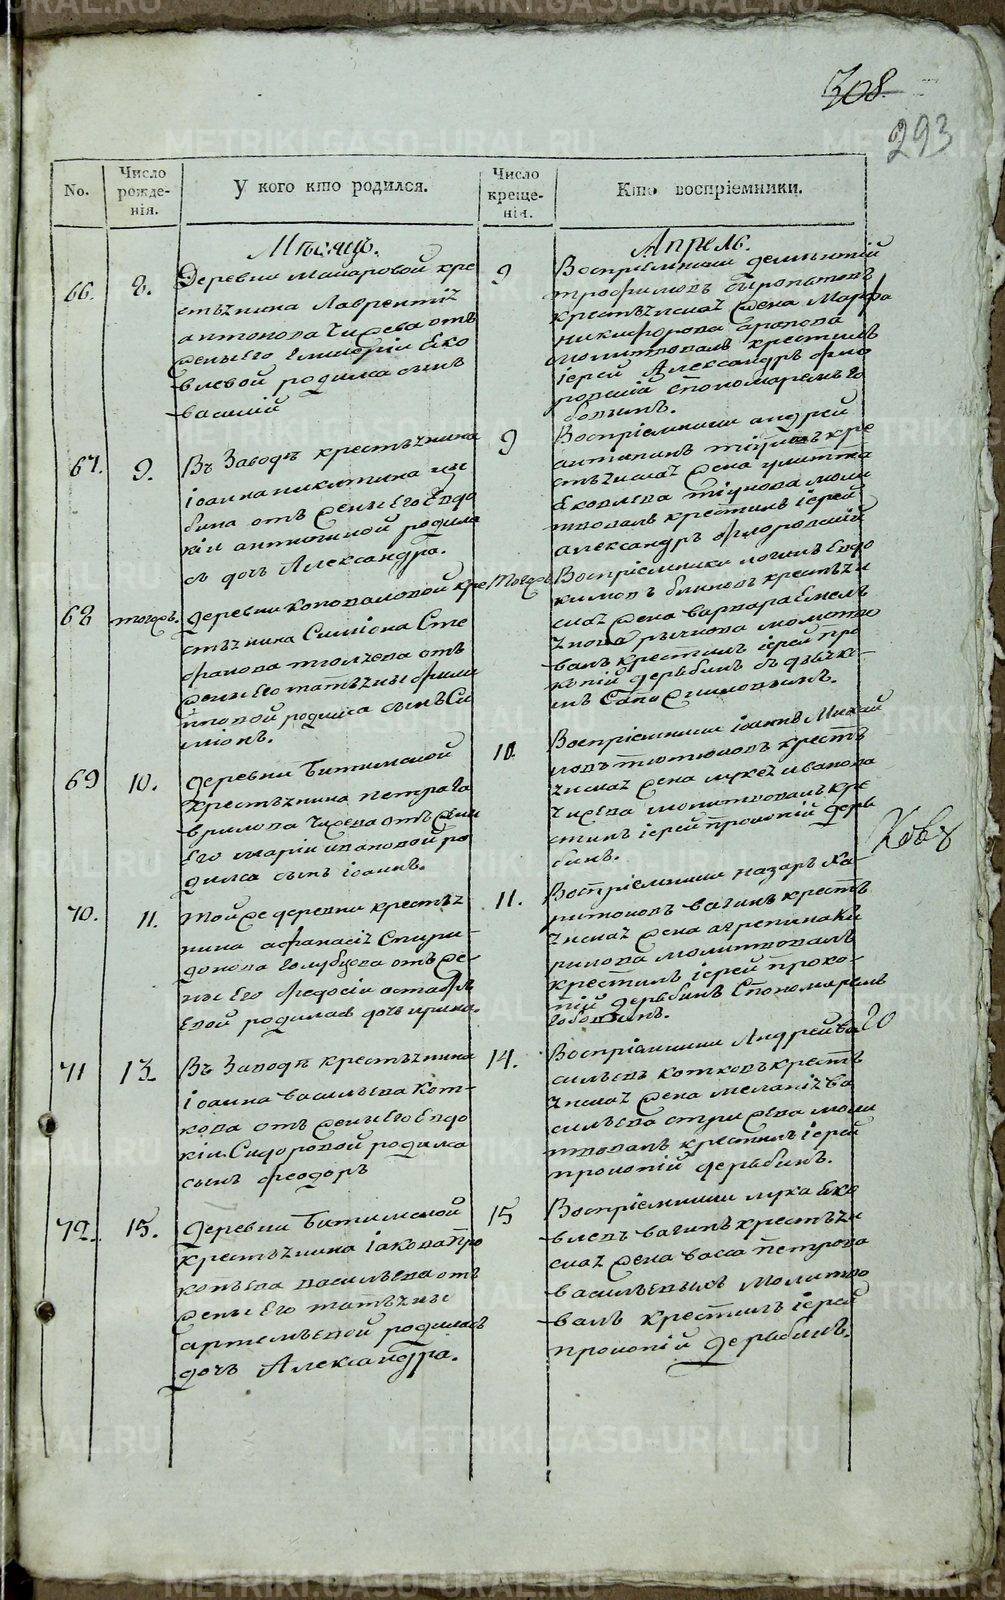 308
293
No.
Число рожденія.
У кого кто родился.
Число крещенія.
Кто воспріемники.
Мѣсяцъ.
Апрель.
66. 8. 9
Деревни Макаровой кре
стьянина Лаврентія
антонова Чижева отъ
жены Его Гликеріи Яко
влевой родился сынъ
василій
Воспріемники дементій
трофимовъ
крестьянская жена Марфа
никифорова
молитвовалъ крестилъ
іерей Александръ Фло
ровскій Спономаремъ Го
бовымъ.
67. 9. 9
Въ Заводѣ крестьянина
іоанна никитина
бина отъ жены Его Евдо
кіи родила
сь дочь Александра.
Воспріемники андрей
антипинъ кре
стьянская жена улитта
Яковлева тіунова моли
твовалъ крестилъ іерей
александръ Флоровскій
68 тогожъ. тогожъ
деревни Коноваловой кре
стьянина Симіона Сте
фанова отъ
жены Его татьяны Фили
пповой родился сынъ Си
міонъ.
Воспріемники логинъ Евдо
кимовъ блиновъ крестьян
ская жена варвара Емель
янова молитво
валъ крестилъ іерей про
копій дерябинъ съ дьячко
мъ Сапожниковымъ.
69 10. 11
деревни Битимской
Крестьянина петра Га
врилова Чижева отъ жены
Его маріи ивановой ро
дился сынъ іоаннъ.
Воспріемники іоаннъ Михай
ловъ крестъ
янская жена лукея иванова
Чижева молитвовалъ кре
стилъ іерей прокопій деря
бинъ.
70. 11. 11.
той же деревни крестья
нина афанасія Спири
донова Голубцова отъ же
ны Его Федосіи астафь
Евой родилась дочь ирина.
Воспріемники назаръ Ха
ритоновъ вагинъ крестъ
янская жена агрепина Ки
рилова молитвовалъ
крестилъ іерей проко
пій дерябинъ Спономаремъ
Гобовымъ.
71 13. 14.
Въ Заводѣ крестьянина
іоанна васильева Кот
кова отъ жены Его Евдо
кіи Сидоровой родился
сынъ Феодоръ
Воспріемники Андрей ва
сильевъ котковъ крестъ
янская жена меланія ва
сильева моли
твовалъ крестилъ іерей
прокопій дерябинъ.
72. 15. 15
деревни Битимской
крестьянина іакова про
копьева васильева отъ
жены Его татьяны
артемьевой родилась
дочь Александра.
Воспріемники лука Яко
влевъ вагинъ крестьян
ская жена васса петрова
васильевыхъ Молитво
валъ крестилъ іерей
прокопій дерябинъ.
METRIKI.GASO-URAL.RU